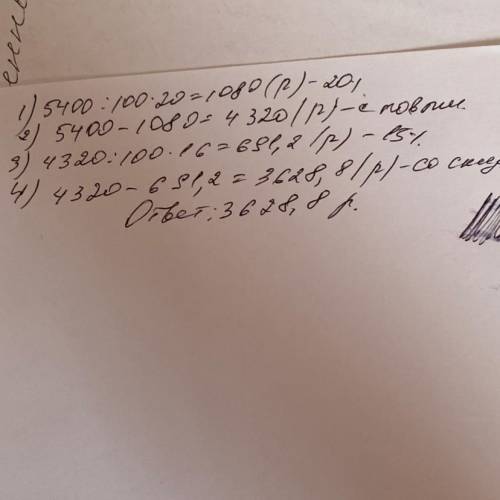 1) 5400:100·20=1080(р)-20%
2) 5400-1080=4320(р)-с повыш.
3) 4320:100·16=691,2(р)-15%
4) 4320-691,2=3628,8(р)-со
Ответ: 3628,8 р.